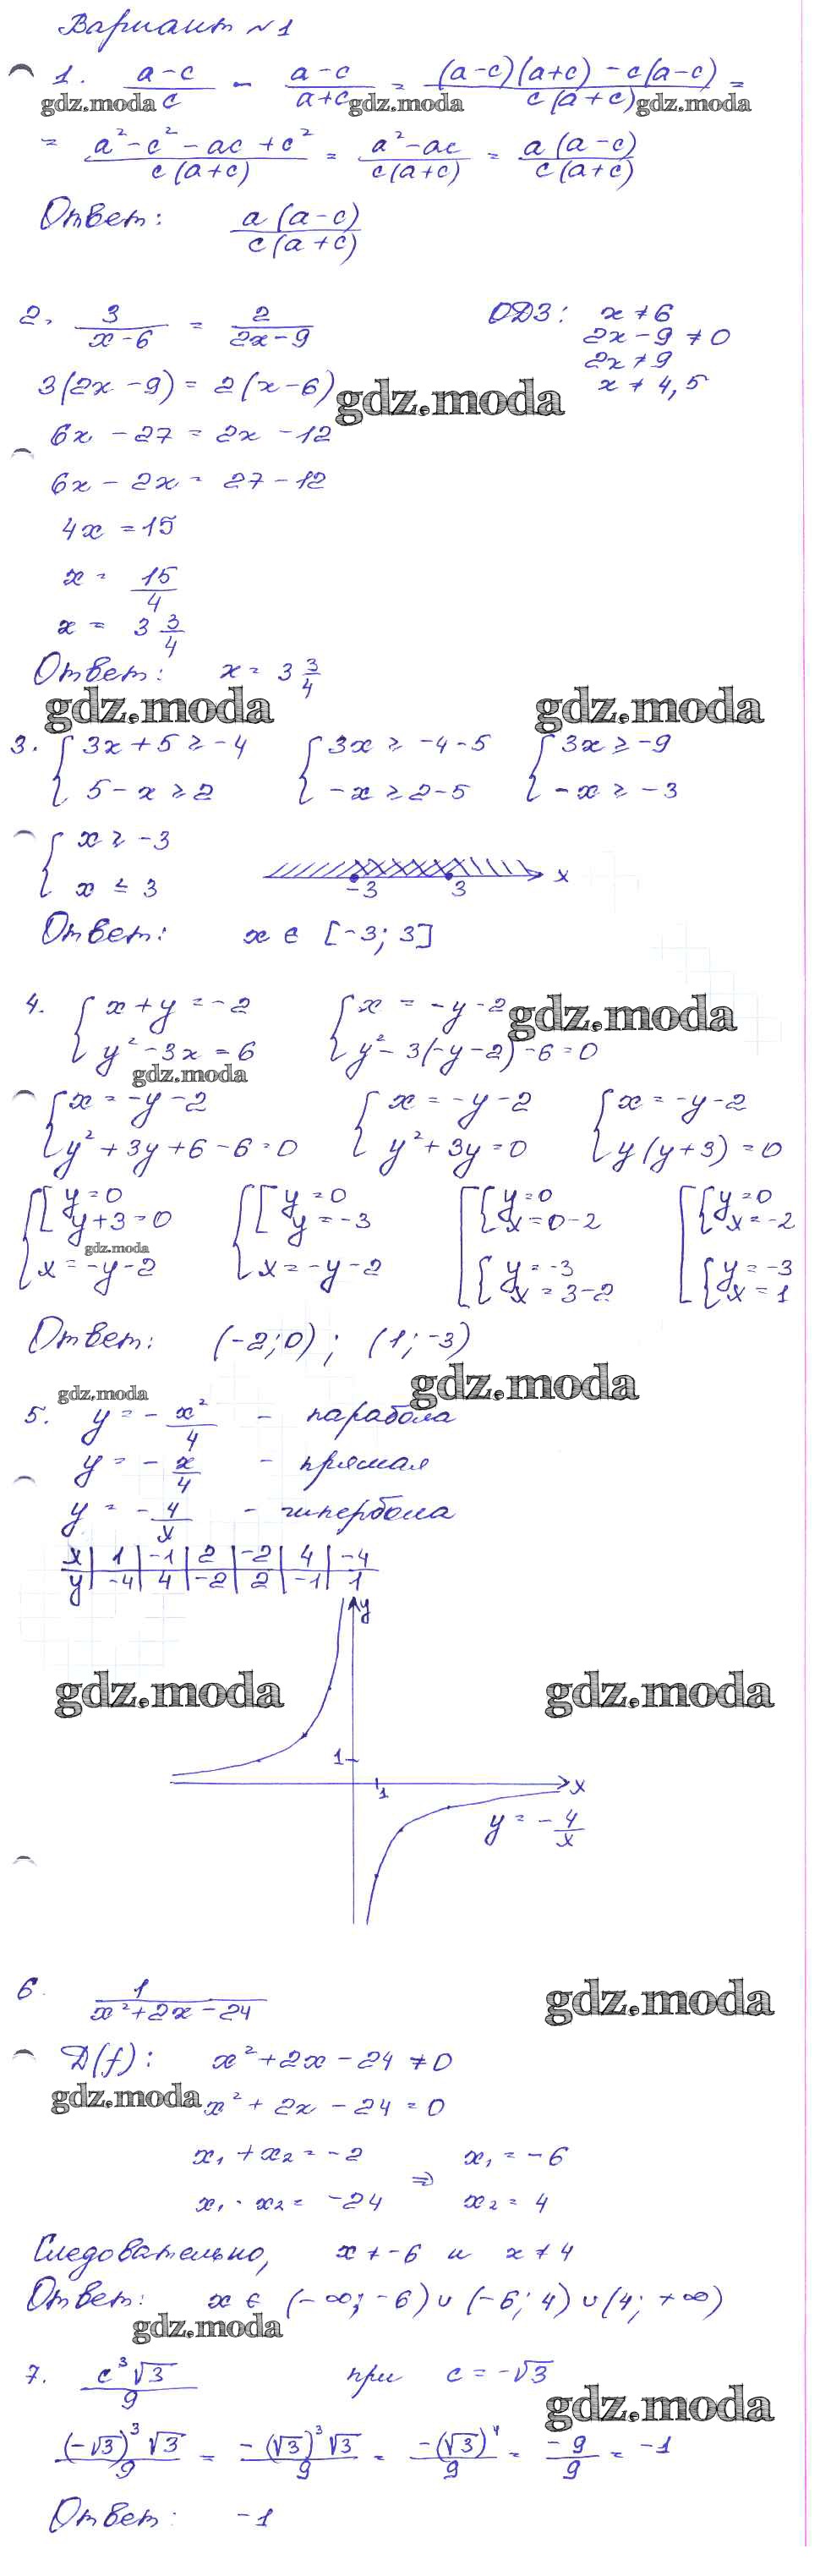 Вариант №1
1. (a-c)/c - (a-c)/(a+c) = ((a-c)(a+c) - c(a-c))/(c(a+c)) =
gdz.moda gdz.moda gdz.moda
= (a²-c²-ac+c²)/(c(a+c)) = (a²-ac)/(c(a+c)) = (a(a-c))/(c(a+c))
Ответ: (a(a-c))/(c(a+c))
2. 3/(x-6) = 2/(2x-9) ОДЗ: x≠6
2x-9≠0
2x≠9
3(2x-9) = 2(x-6) x≠4,5
gdz.moda
6x-27 = 2x-12
6x-2x = 27-12
4x = 15
x = 15/4
x = 3 3/4
Ответ: x = 3 3/4
gdz.moda gdz.moda
3. { 3x+5 ≥ -4 { 3x ≥ -4-5 { 3x ≥ -9
5-x ≥ 2 -x ≥ 2-5 -x ≥ -3
{ x ≥ -3
x ≤ 3 -3 3 x
Ответ: x ∈ [-3; 3]
4. { x+y = -2 { x = -y-2 gdz.moda
y²-3x = 6 y²-3(-y-2)-6=0
gdz.moda
{ x = -y-2 { x = -y-2 { x = -y-2
y²+3y+6-6=0 y²+3y=0 y(y+3)=0
{ [ y=0 { [ y=0 [ { y=0 [ { y=0
y+3=0 y=-3 x=0-2 x=-2
gdz.moda
x=-y-2 x=-y-2 { y=-3 { y=-3
x=3-2 x=1
Ответ: (-2;0); (1;-3)
gdz.moda gdz.moda
5. y = -x²/4 - парабола
y = -x/4 - прямая
y = -4/x - гипербола
x | 1 | -1 | 2 | -2 | 4 | -4
y | -4 | 4 | -2 | 2 | -1 | 1
y
gdz.moda gdz.moda
1
1 x
y = -4/x
6. 1/(x²+2x-24) gdz.moda
D(f): x²+2x-24≠0
gdz.moda x²+2x-24=0
x₁+x₂=-2 ⇒ x₁=-6
x₁·x₂=-24 x₂=4
Следовательно, x≠-6 и x≠4
Ответ: x ∈ (-∞;-6)∪(-6;4)∪(4;+∞)
gdz.moda
7. c³√3/9 при c=-√3
gdz.moda
(-√3)³√3/9 = -(√3)³√3/9 = -(√3)⁴/9 = -9/9 = -1
Ответ: -1